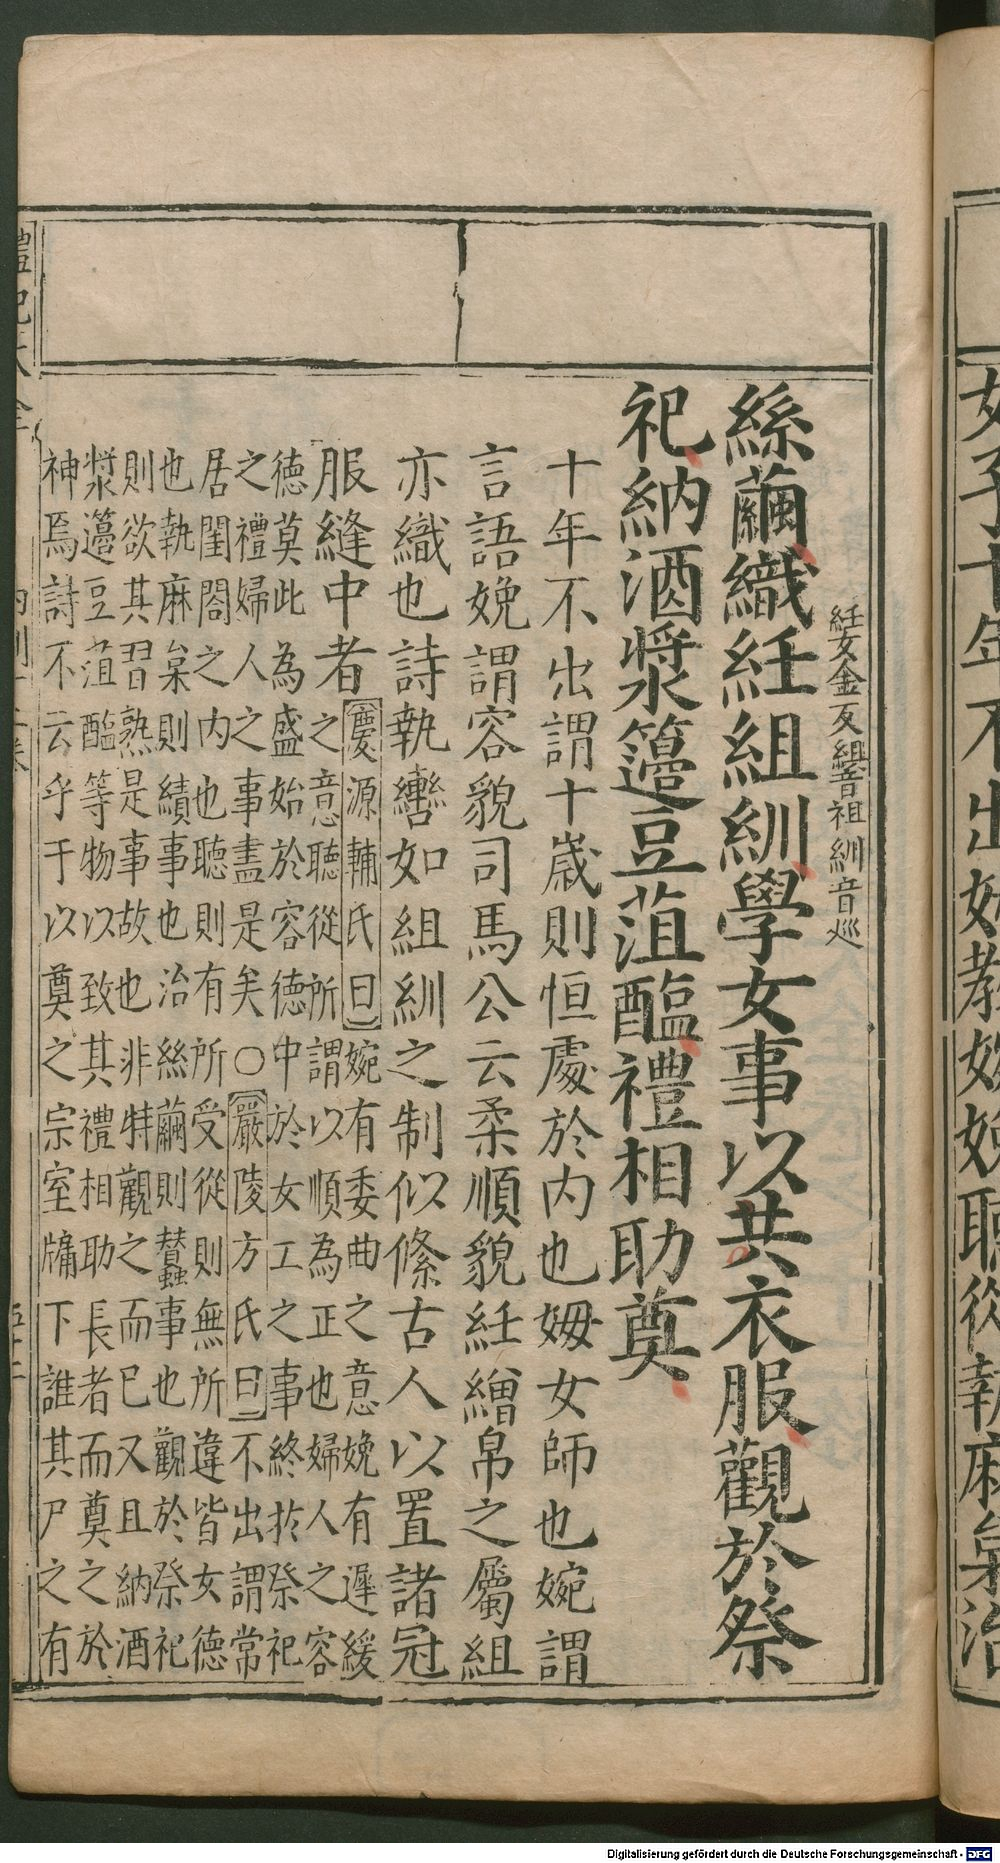 女子十年不出姆教婉娩聽從執麻枲治
紝女金反組音祖紃音巡
絲繭織紝組紃學女事以共衣服觀於祭
祀納酒漿籩豆菹醢禮相助奠
十年不出謂十歲則恒處於内也姆女師也婉謂
言語娩謂容貌司馬公云柔順貌紝繒帛之屬組
亦織也詩執轡如組紃之制似絛古人以置諸冠
服縫中者
慶源輔氏曰婉有委曲之意娩有遲緩
之意聽從所謂以順為正也婦人之容
德莫此為盛始於容德中於女工之事終於祭祀
之禮婦人之事盡是矣○嚴陵方氏曰不出謂常
居閨閤之内也聽則有所受從則無所違皆女德
也執麻枲則績事也治絲繭則蠶事也觀於祭祀
則欲其習熟是事故也非特觀之而已又且納酒
漿籩豆菹醢等物以致其禮相助長者而奠之於
神焉詩不云乎于以奠之宗室牖下誰其尸之有
Digitalisierung gefördert durch die Deutsche Forschungsgemeinschaft - DFG